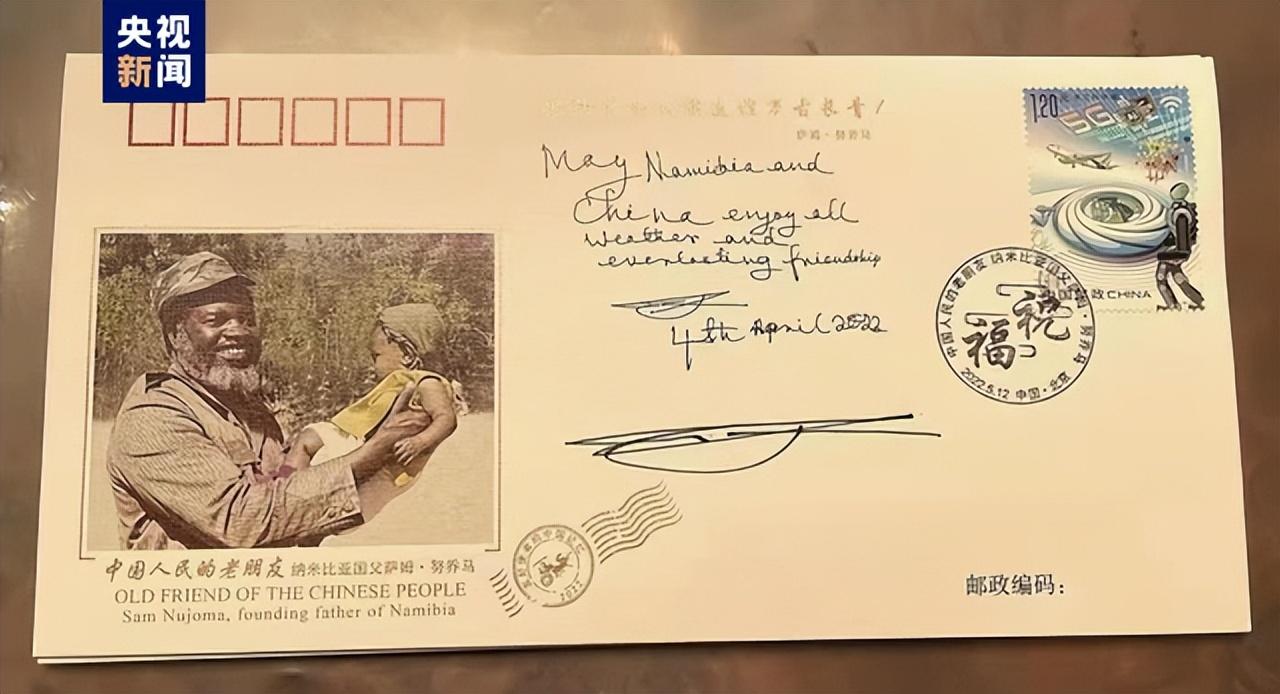 央视
新闻
万古长青!
萨姆·努乔马
May Namibia and
China enjoy all
weather and
everlasting friendship
4th April 2022
1.20
5G
中国邮政 CHINA
中国人民的老朋友 纳米比亚国父萨姆·努乔马
祝福
2022.5.12 中国·北京
中国人民的老朋友 纳米比亚国父萨姆·努乔马
OLD FRIEND OF THE CHINESE PEOPLE
Sam Nujoma, founding father of Namibia
2022
邮政编码: